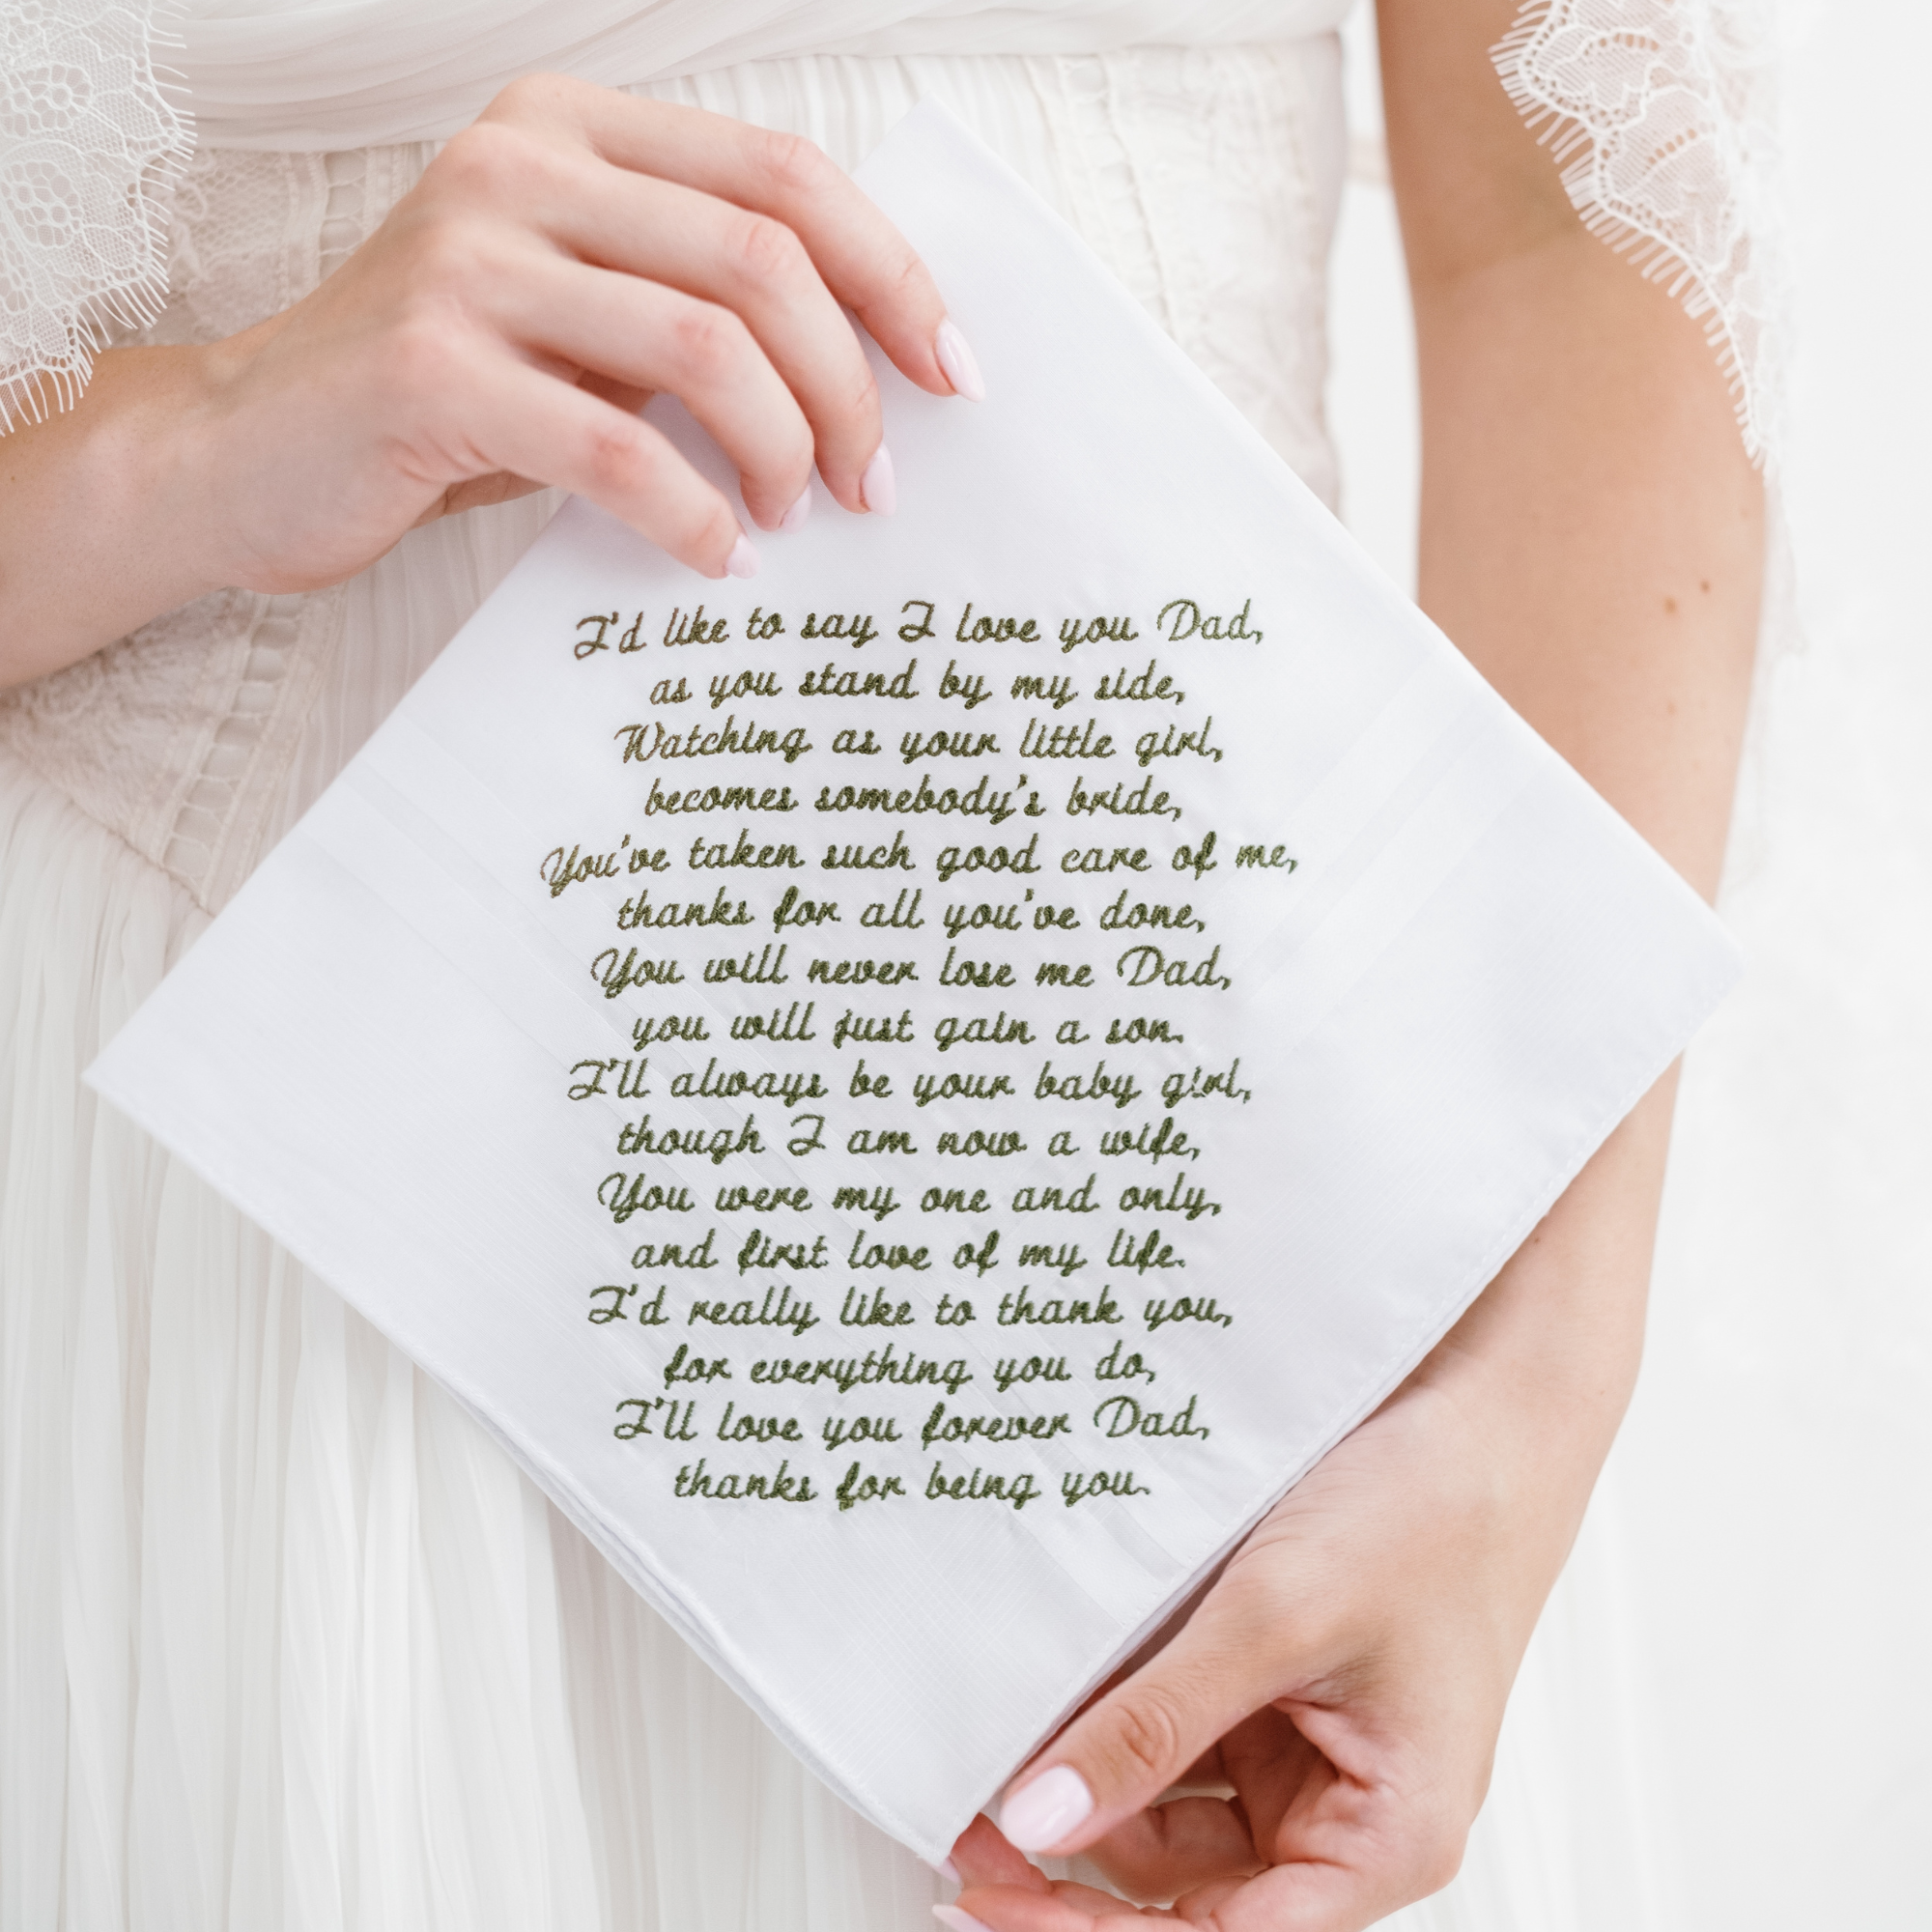 I'd like to say I love you Dad,
as you stand by my side,
Watching as your little girl,
becomes somebody's bride,
You've taken such good care of me,
thanks for all you've done,
You will never lose me Dad,
you will just gain a son.
I'll always be your baby girl,
though I am now a wife,
You were my one and only,
and first love of my life.
I'd really like to thank you,
for everything you do,
I'll love you forever Dad,
thanks for being you.